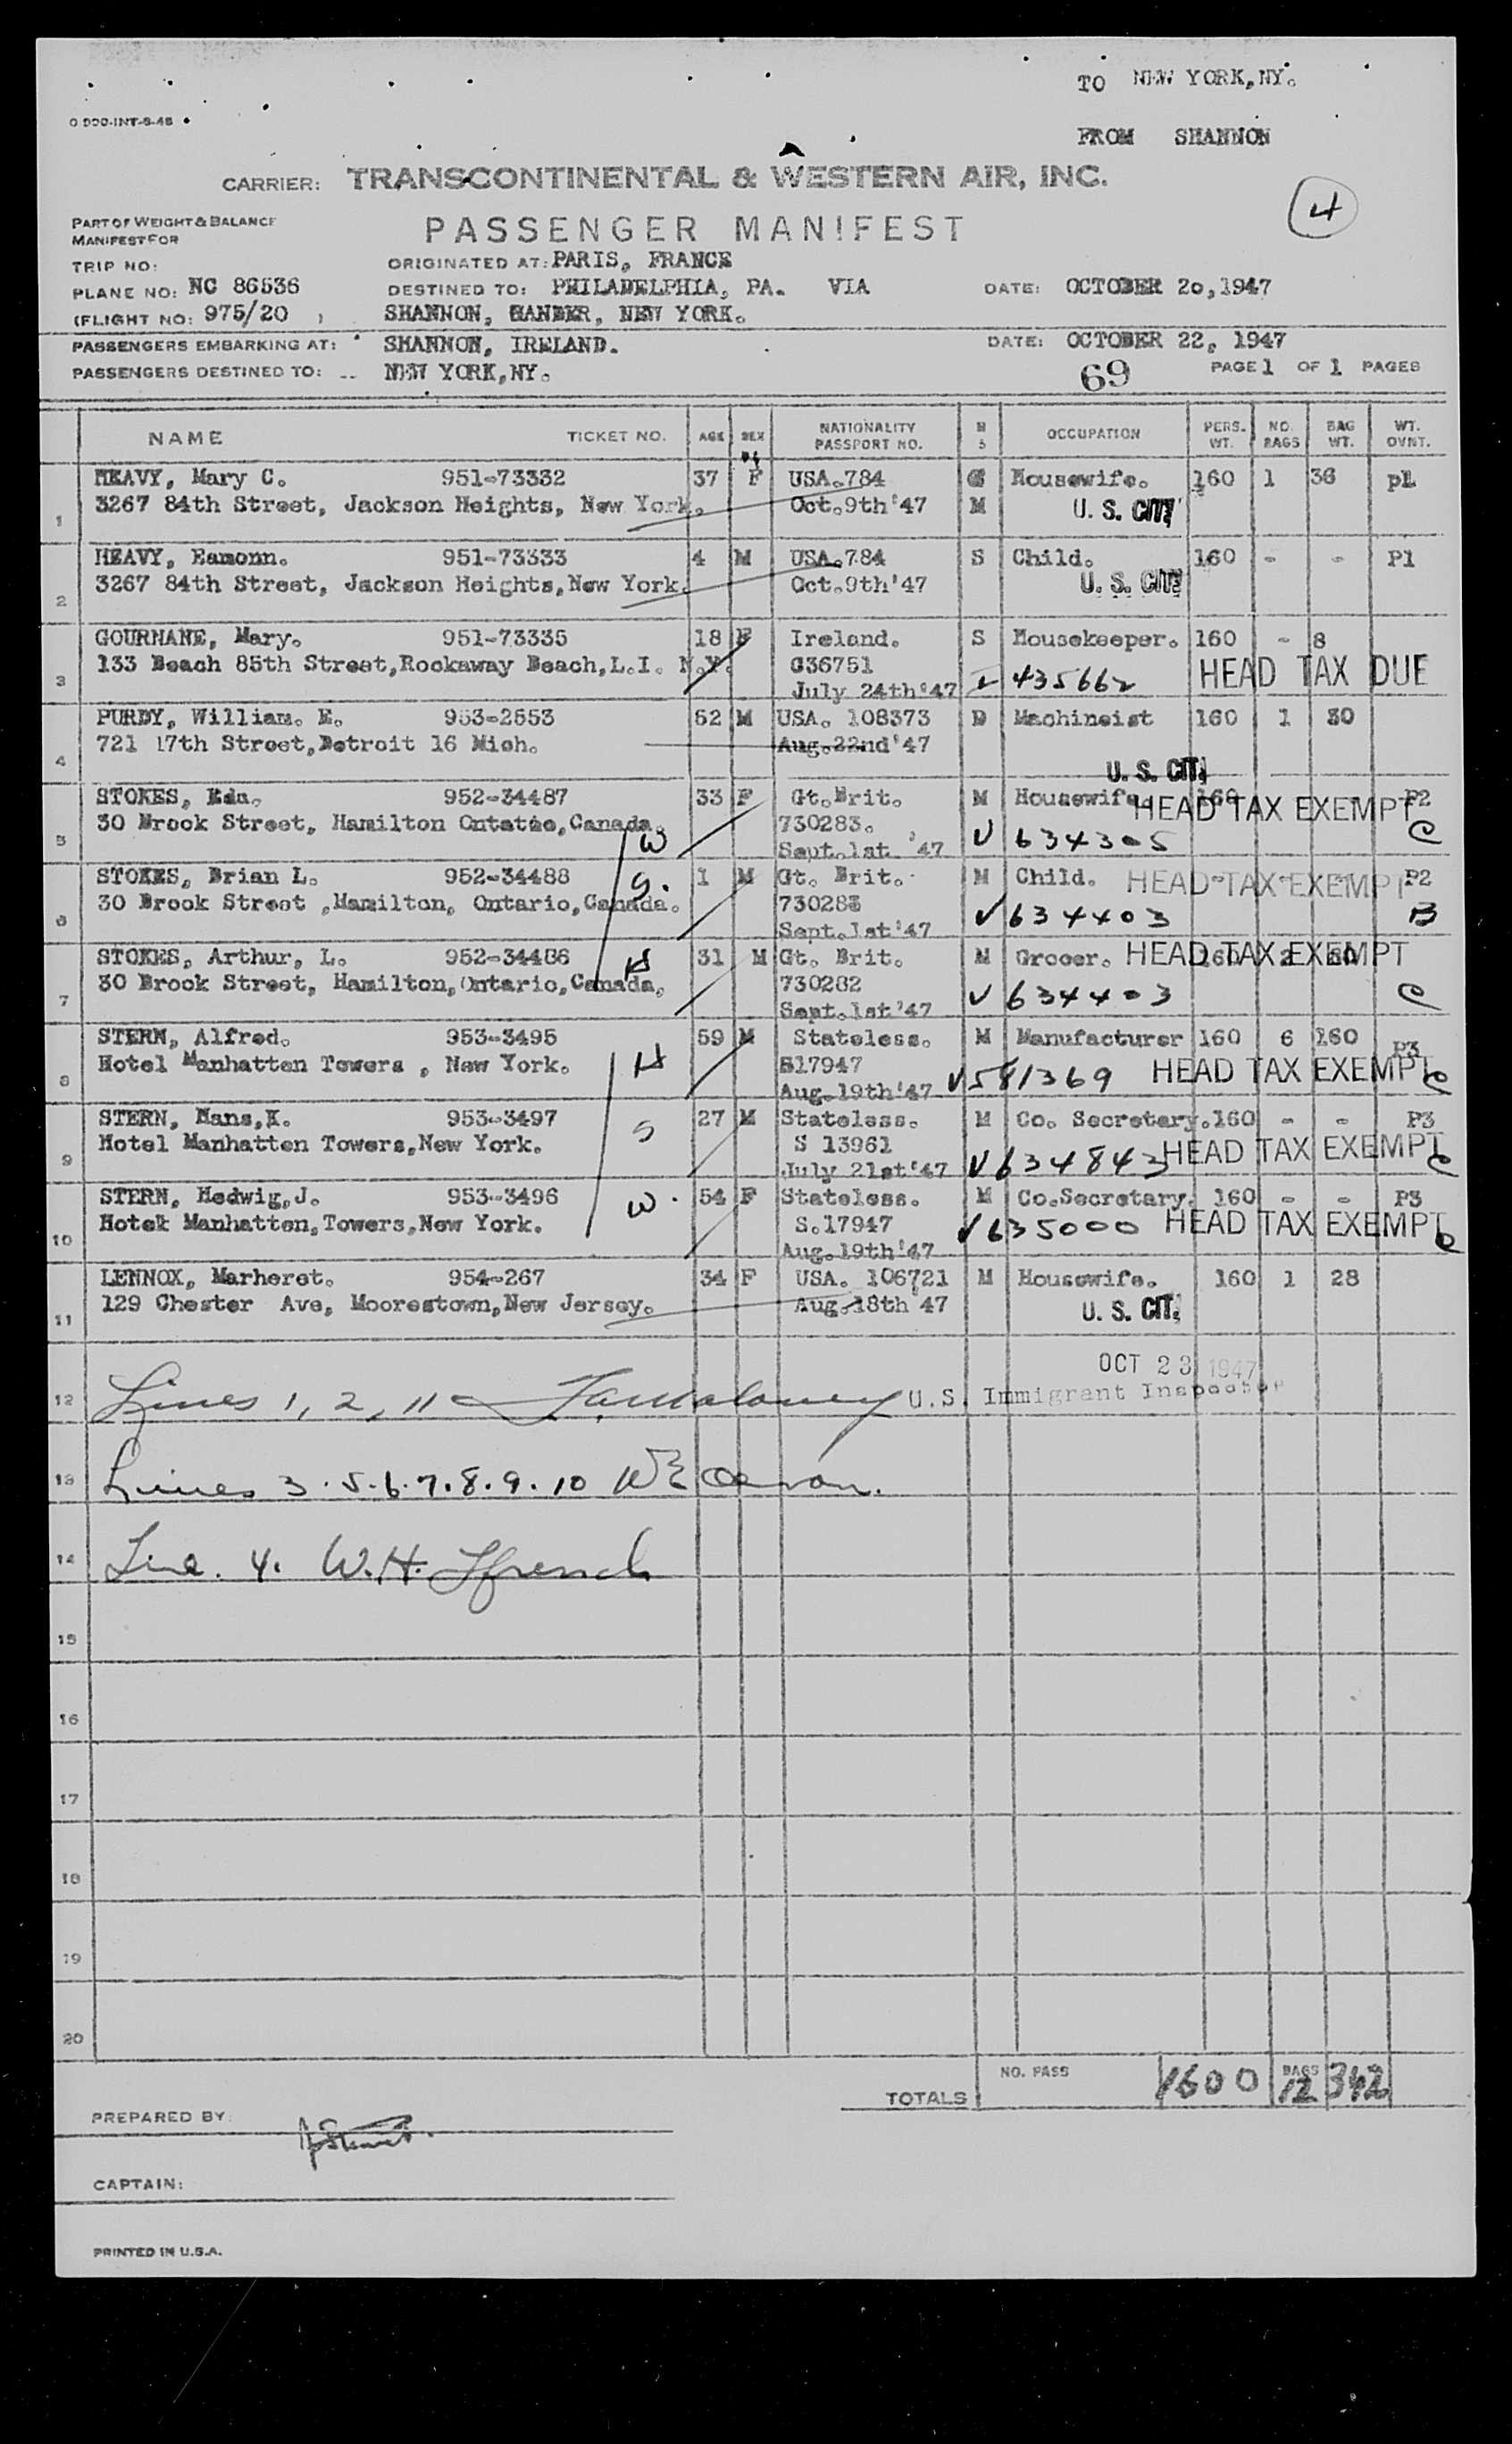 TO NEW YORK,NY.
FROM SHANNON
CARRIER: TRANSCONTINENTAL & WESTERN AIR, INC.
4
PART OF WEIGHT & BALANCE
MANIFEST FOR
PASSENGER MANIFEST
TRIP NO:
ORIGINATED AT: PARIS, FRANCE
PLANE NO: NC 86536
DESTINED TO: PHILADELPHIA, PA. VIA
DATE: OCTOBER 20,1947
(FLIGHT NO: 975/20 )
SHANNON, GANDER, NEW YORK.
PASSENGERS EMBARKING AT: SHANNON, IRELAND.
DATE: OCTOBER 22, 1947
PASSENGERS DESTINED TO: NEW YORK,NY.
69
PAGE 1 OF 1 PAGES
NAME TICKET NO. AGE SEX NATIONALITY PASSPORT NO. M S OCCUPATION PERS. WT. NO. BAGS BAG WT. WT. OVNT.
HEAVY, Mary C. 951-73332 37 F USA.784 Housewife. 160 1 36 p1
1 3267 84th Street, Jackson Heights, New York. Oct.9th'47 M U. S. CIT.
HEAVY, Eamonn. 951-73333 4 M USA.784 S Child. 160 - - P1
2 3267 84th Street, Jackson Heights,New York. Oct.9th'47 U. S. CIT.
GOURNANE, Mary. 951-73335 18 F Ireland. S Housekeeper. 160 - 8
133 Beach 85th Street,Rockaway Beach,L.I. N.Y. G36751 HEAD TAX DUE
3 July 24th'47 I 435662
PURDY, William. E. 953-2553 62 M USA. 108373 D Machineist 160 1 30
721 17th Street,Detroit 16 Mich. Aug.22nd'47
4 U. S. CIT.
STOKES, Eda. 952-34487 33 F Gt.Brit. M Housewife. 160 - P2
30 Brook Street, Hamilton Ontatio,Canada. 730283. HEAD TAX EXEMPT
5 W Sept.1st '47 √ 634305 C
STOKES, Brian L. 952-34488 1 M Gt. Brit. M Child. HEAD TAX EXEMPT P2
30 Brook Street ,Hamilton, Ontario,Canada. S. 730283
6 Sept.1st'47 √ 634403 B
STOKES, Arthur, L. 952-34486 31 M Gt. Brit. M Grocer. HEAD TAX EXEMPT 160 2
30 Brook Street, Hamilton,Ontario,Canada. H 730282
7 Sept.1st'47 √ 634403 C
STERN, Alfred. 953-3495 59 M Stateless. M Manufacturer 160 6 160 P3
Hotel Manhatten Towers , New York. H S17947
8 Aug.19th'47 √581369 HEAD TAX EXEMPT C
STERN, Hans,K. 953-3497 27 M Stateless. M Co. Secretary. 160 - - P3
Hotel Manhatten Towers,New York. S S 13961
9 July 21st'47 √634843 HEAD TAX EXEMPT C
STERN, Hedwig,J. 953-3496 54 F Stateless. M Co.Secretary. 160 - - P3
Hotek Manhatten,Towers,New York. W. S.17947
10 Aug.19th'47 √635000 HEAD TAX EXEMPT C
LENNOX, Marheret. 954-267 34 F USA. 106721 M Housewife. 160 1 28
11 129 Chester Ave, Moorestown,New Jersey. Aug.18th 47 U. S. CIT.
OCT 23 1947
12 Lines 1, 2, 11 U.S. Immigrant Inspector
13 Lines 3.5.6.7.8.9.10
14 Line. 4. W.H. Ffrench
15
16
17
18
19
20
TOTALS NO. PASS 1600 BAGS 12 342
PREPARED BY:
CAPTAIN:
PRINTED IN U.S.A.